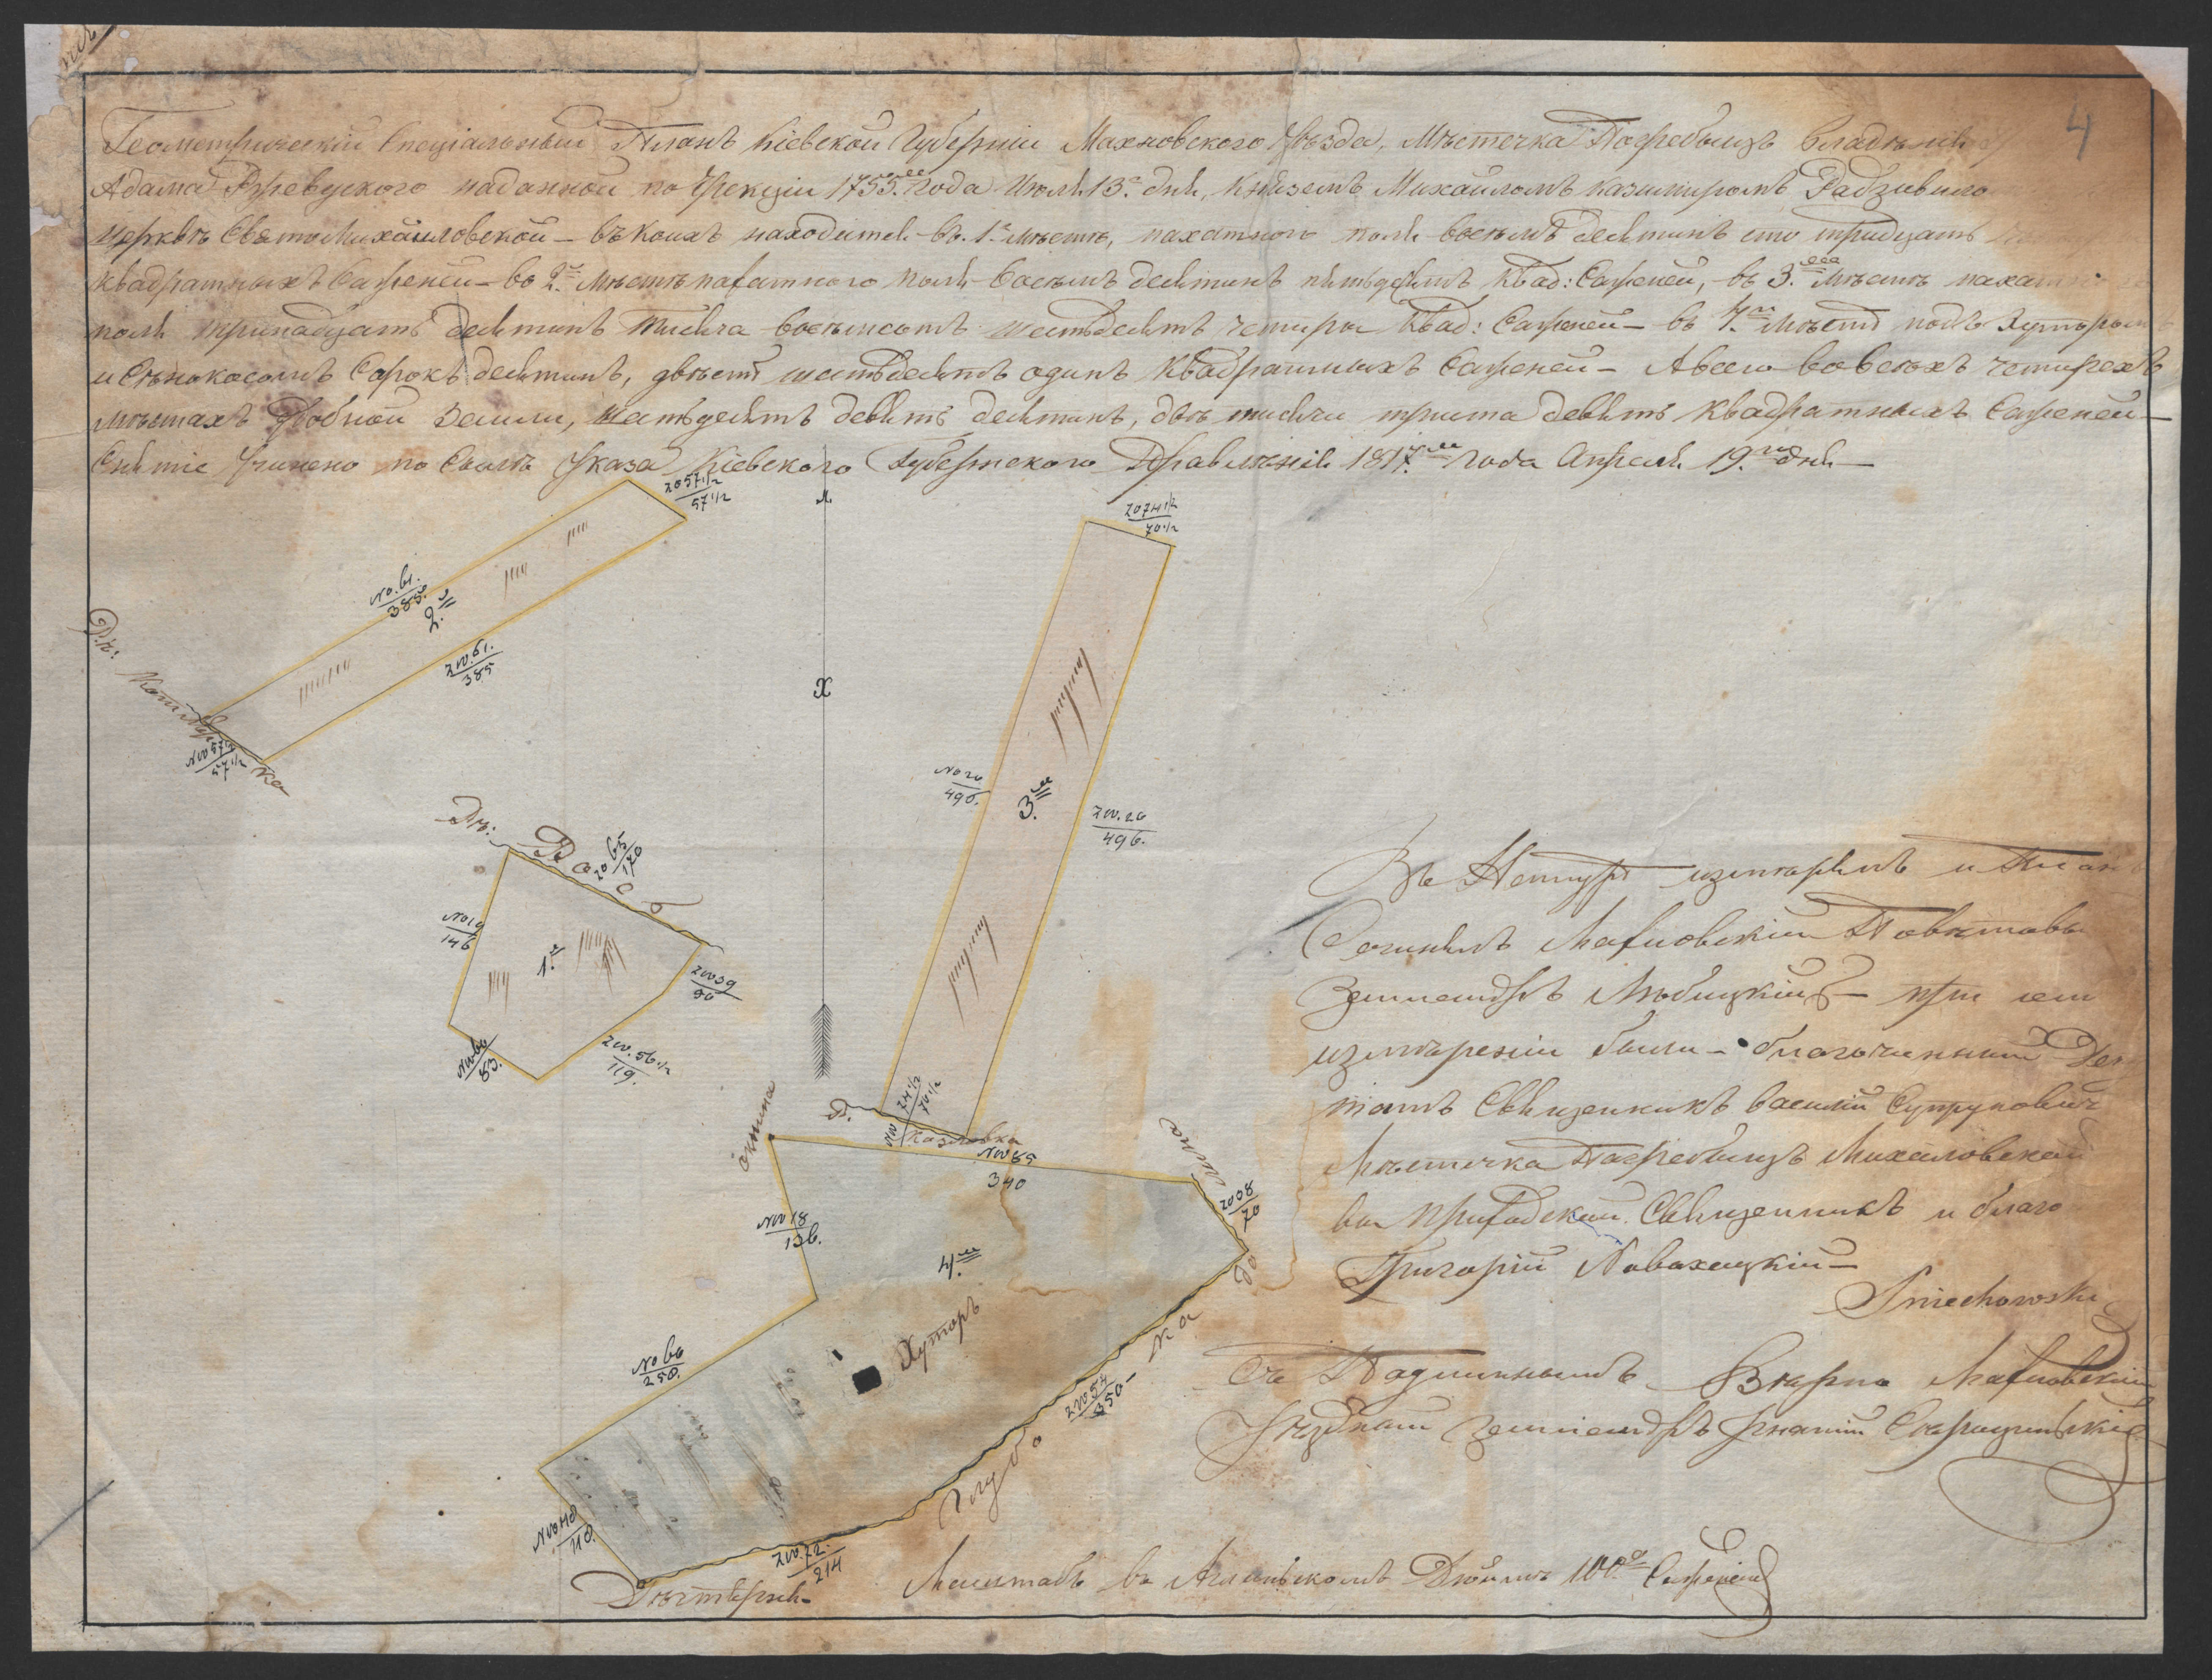 4
Геометрическій Спеціальный Планъ Кіевской Губерніи Махновского Уѣзда, Мѣстечка Погребыщъ
Адама Ржевуского наданной по Эрекціи 1755.го Года Июля 13.о дня, Княземъ Михаиломъ Казимиромъ Радзивило
церквѣ Святомихайловской – въ коихъ находится – въ. 1.м мѣстѣ, пахатного поля восемъ десятинъ сто тридцать
квадратныхъ Саженей – во 2.м мѣстѣ пахатного поля восемъ десятинъ пятьдесятъ квад: Саженей, въ 3.мъ мѣстѣ пахатного
поля тринадцать десятинъ тисяча восемьсотъ шестьдесятъ четыри квад: Саженей – въ 4.м мѣстѣ подъ Хуторомъ
и Сѣнокосомъ Сорокъ десятинъ, двѣсти шестьдесятъ одинъ квадратныхъ Саженей – А всего во всѣхъ четырехъ
мѣстахъ удобной Земли, шестьдесятъ девять десятинъ, двѣ тисячи триста девять квадратныхъ Саженей –
Снятіе учинено по Силѣ Указа Кіевского Губернского Правленія 1817.го года Апреля 19.го дня –
2057 1/2
57 1/2
NO.61.
385.
2.й
ZW.61.
385
Рѣ:
NW 57 1/2
57 1/2
ка
Рѣ: Рось
ZO 65
170
NO19
146
1.й
ZW 39
90
ZW.56 1/2
119.
NW 60
83.
Х
ZO 74 1/2
70 1/2
NO 20
496.
3.й
ZW.20
496.
NW 74 1/2
70 1/2
Р. Казимовка
NW 85
340
NW 18
136.
долина
ZO 08
70
4.е
Хуторъ
NO 60
258.
ZW 54
350 –
Глубо ка
NW 40
110.
ZW.72.
214
Въ Натурѣ измѣрялъ и Планъ
Сочинялъ Махновскій Повѣтовы
Землемѣръ – при чем
измѣреніи были – благочинный Де
татъ Священникъ Василій Супрунович
Мѣстечка Погребыщъ Михаиловской
Приходскій Священникъ и благо
Григорій Новохацкій –
Съ Подлиннымъ Вѣрно Махновскій
Уѣздный Землемѣръ Игнатій
Масштабъ въ Аглинскомъ Дюймѣ 100.о Саженей